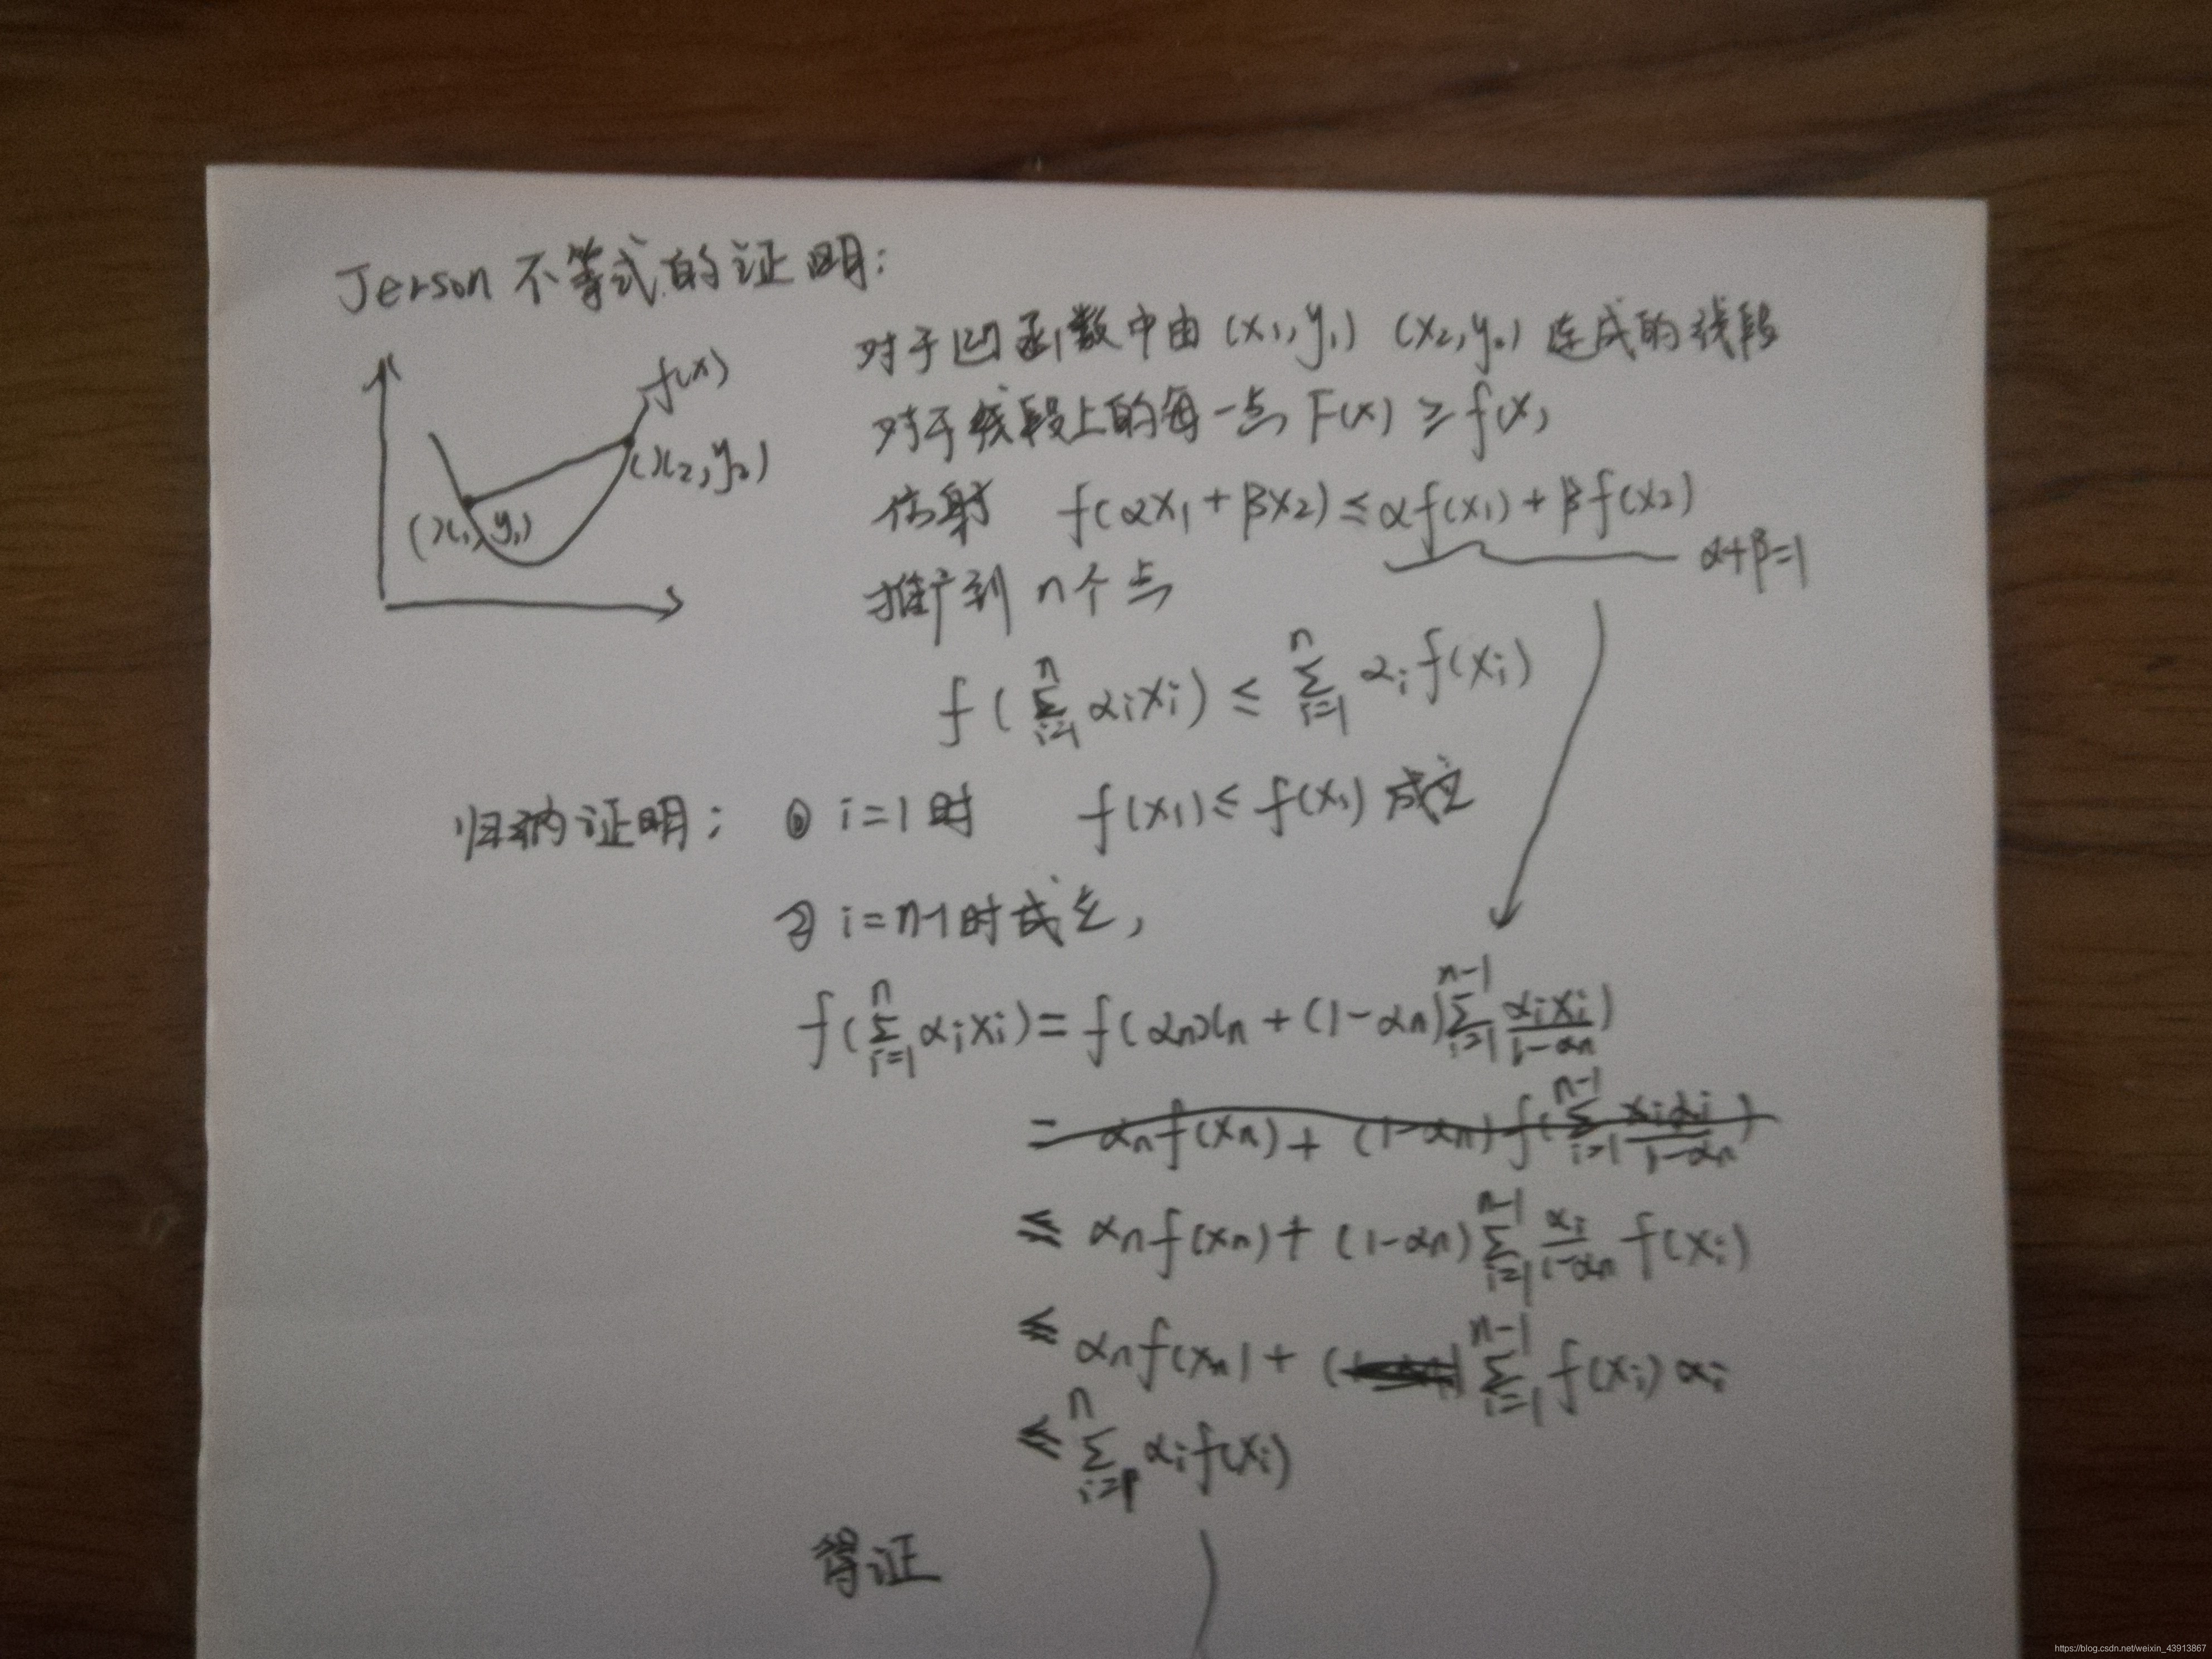 Jerson 不等式的证明:
对于凹函数中由 (x₁,y₁) (x₂,y₂) 连成的线段
对于线段上的每一点 F(x) ≥ f(x)
f(x)
(x₂,y₂)
(x₁,y₁)
仿射 f(αx₁+βx₂) ≤ αf(x₁)+βf(x₂)
α+β=1
推广到 n个点
f(∑_{i=1}^{n} αᵢxᵢ) ≤ ∑_{i=1}^{n} αᵢf(xᵢ)
归纳证明: ① i=1时 f(x₁) ≤ f(x₁) 成立
② i=n-1时成立,
f(∑_{i=1}^{n} αᵢxᵢ) = f(αₙxₙ + (1-αₙ)∑_{i=1}^{n-1} αᵢxᵢ/(1-αₙ))
= αₙf(xₙ) + (1-αₙ)f(∑_{i=1}^{n-1} xᵢαᵢ/(1-αₙ))
≤ αₙf(xₙ) + (1-αₙ)∑_{i=1}^{n-1} αᵢ/(1-αₙ) f(xᵢ)
≤ αₙf(xₙ) + ∑_{i=1}^{n-1} f(xᵢ)αᵢ
≤ ∑_{i=1}^{n} αᵢf(xᵢ)
得证
https://blog.csdn.net/weixin_43913867